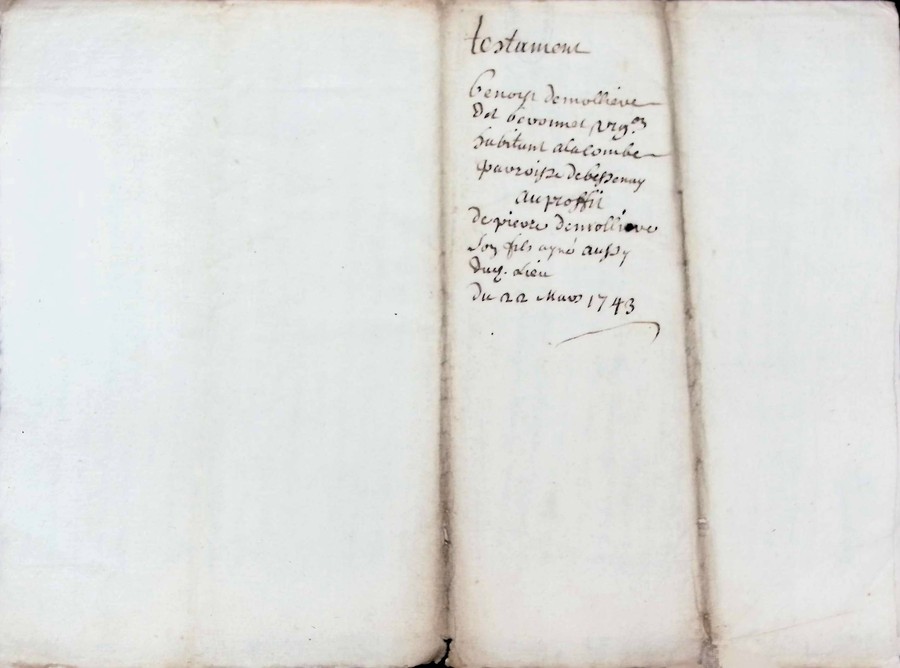 testament
Benoist demolliere
dit bevonnet vig.on
habitant alacombe
parroisse debessenay
au proffit
de pierre demolliere
son fils ayné aussy
dud. Lieu
du 22 Mars 1743